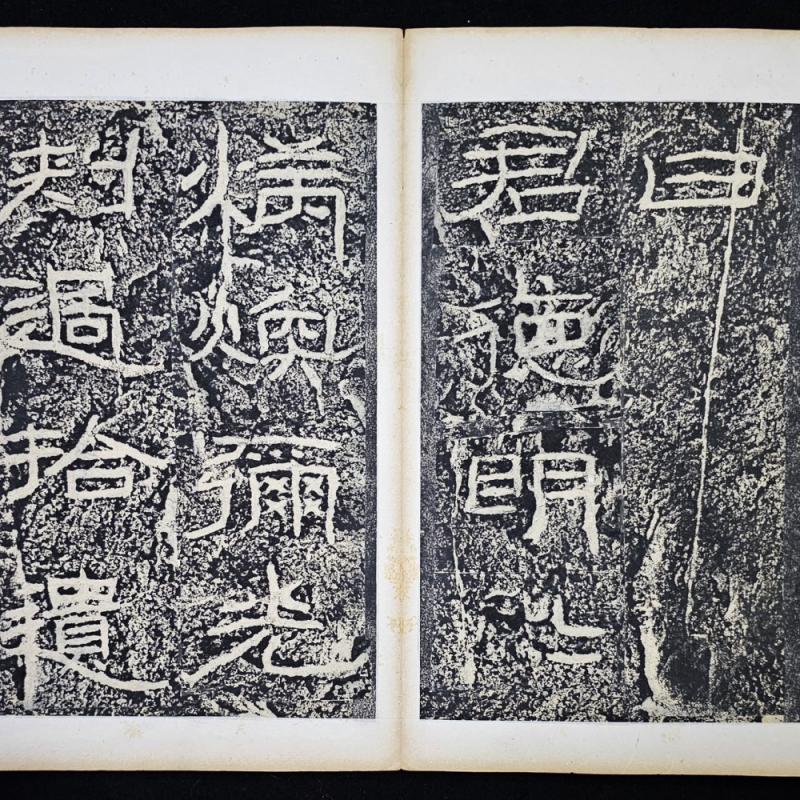 曰
君德明
炳煥彌光
刺過拾遺